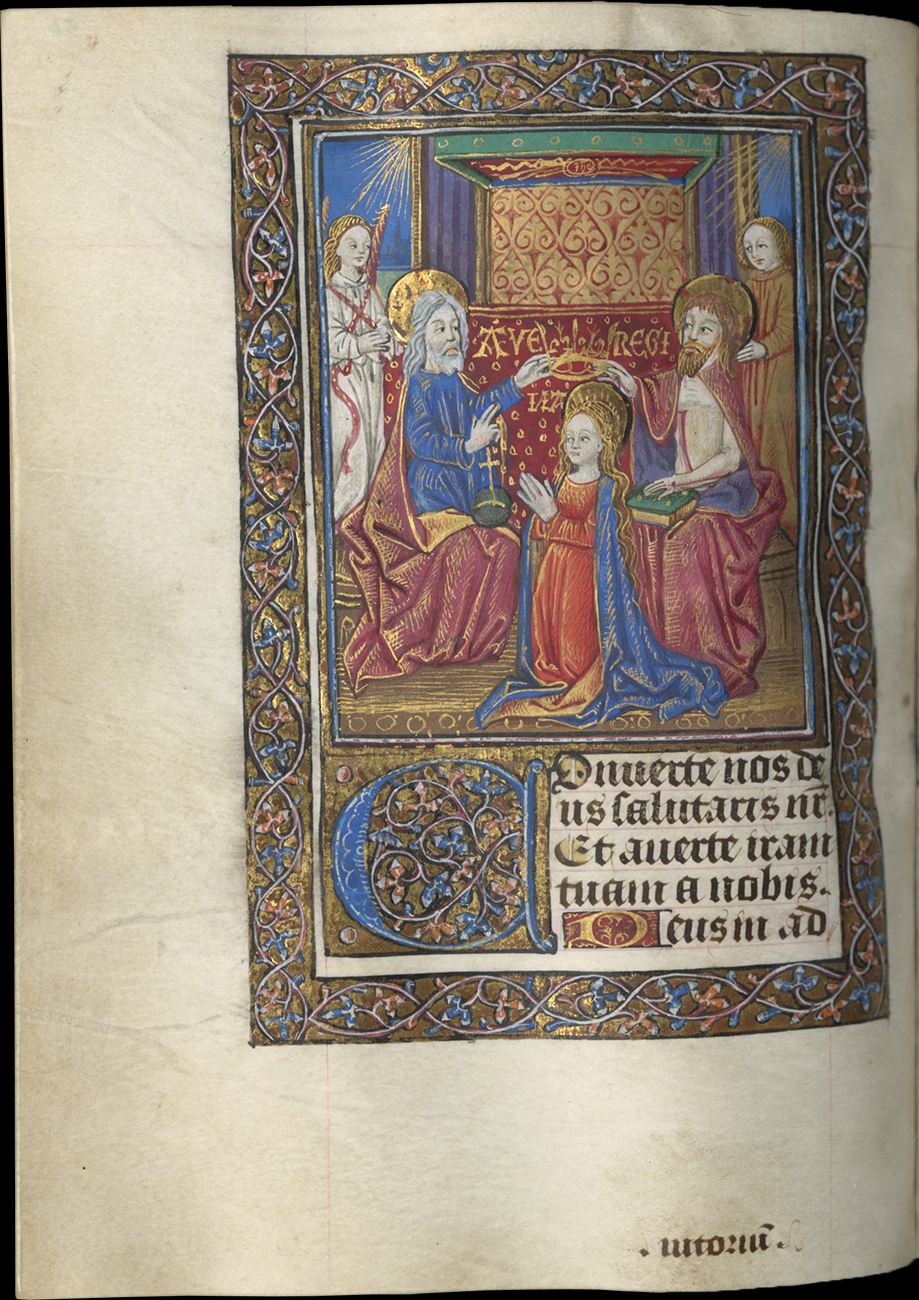 AVE REGI
NA
Onuerte nos de
us salutaris nr̄.
Et auerte iram
tuam a nobis.
Deus in ad
. iutoriū .